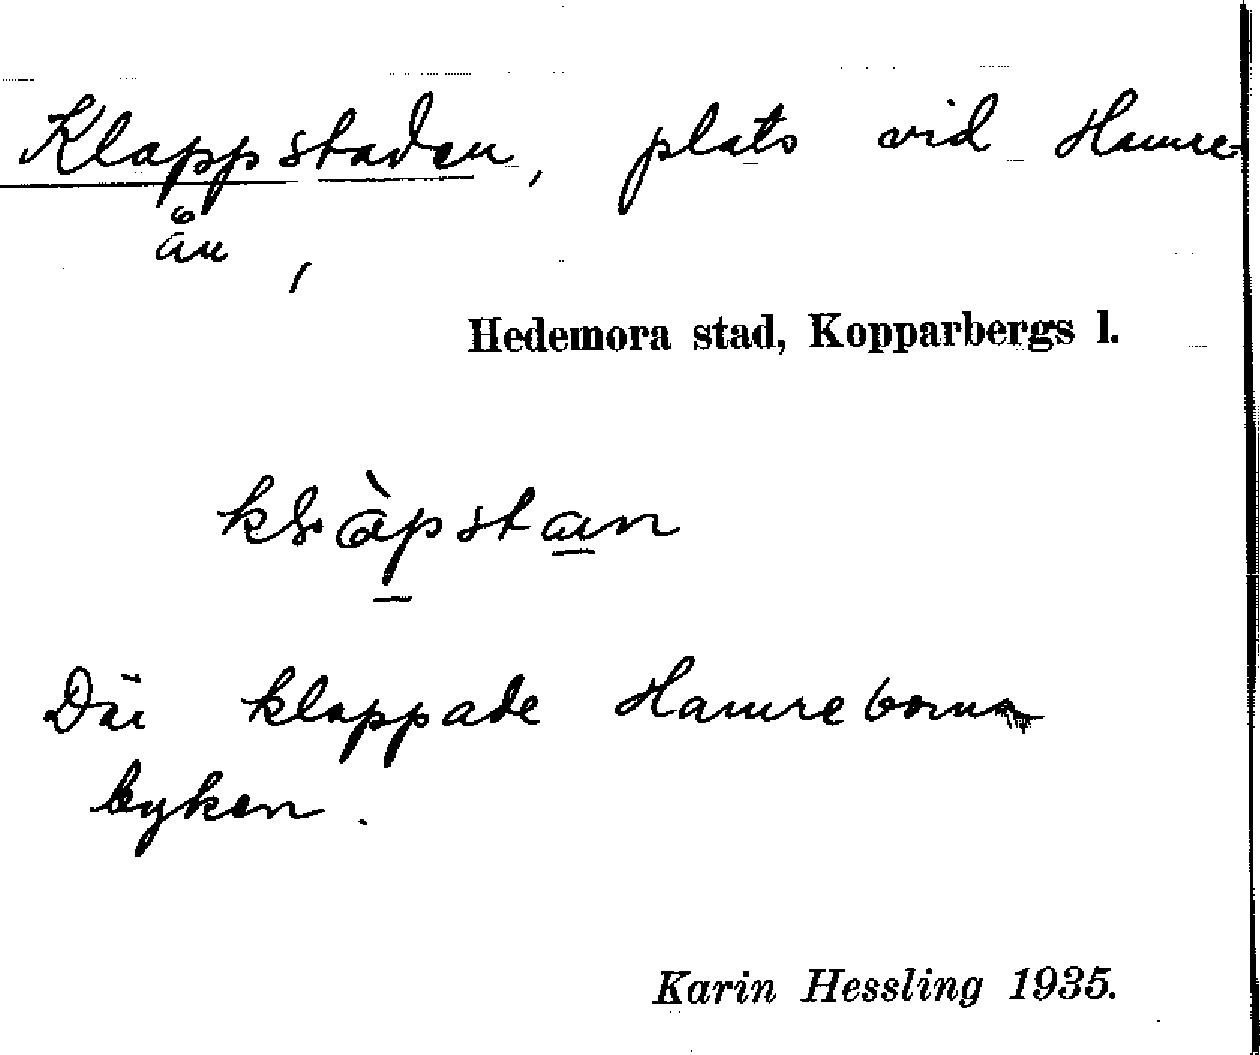 Klappstaden, plats vid Hamre-
ån,
Hedemora stad, Kopparbergs l.
Där klappade Hamreborna
byken.
Karin Hessling 1935.